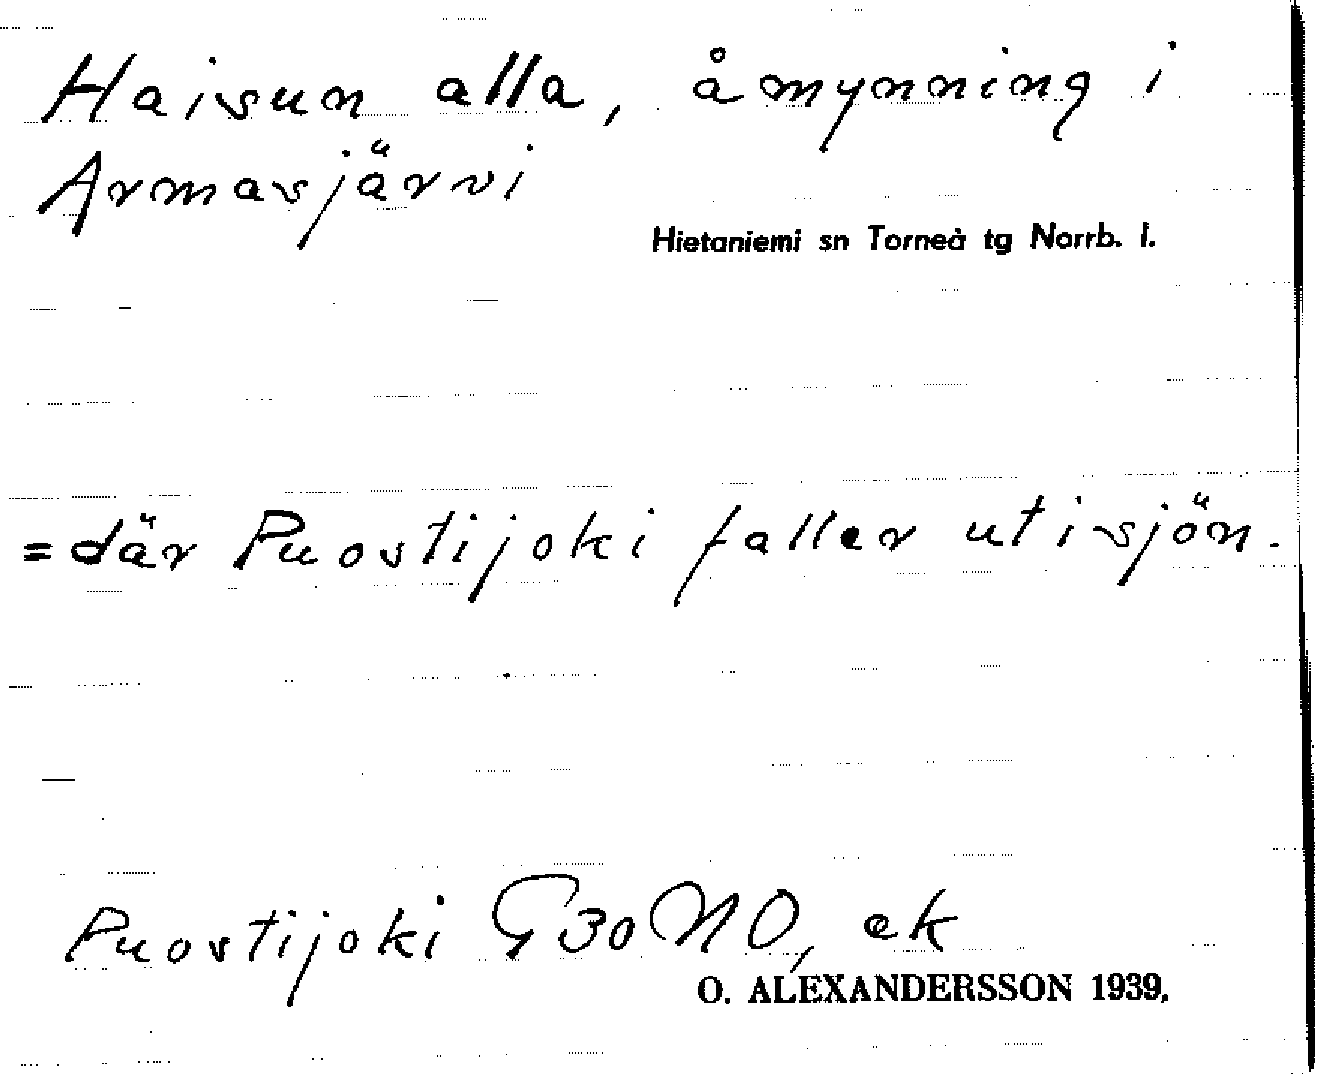 Haisun alla, åmynning i
Armasjärvi
Hietaniemi sn Torneå tg Norrb. l.
= där Puostijoki faller ut i sjön.
Puostijoki G30NO, ek
O. ALEXANDERSSON 1939.